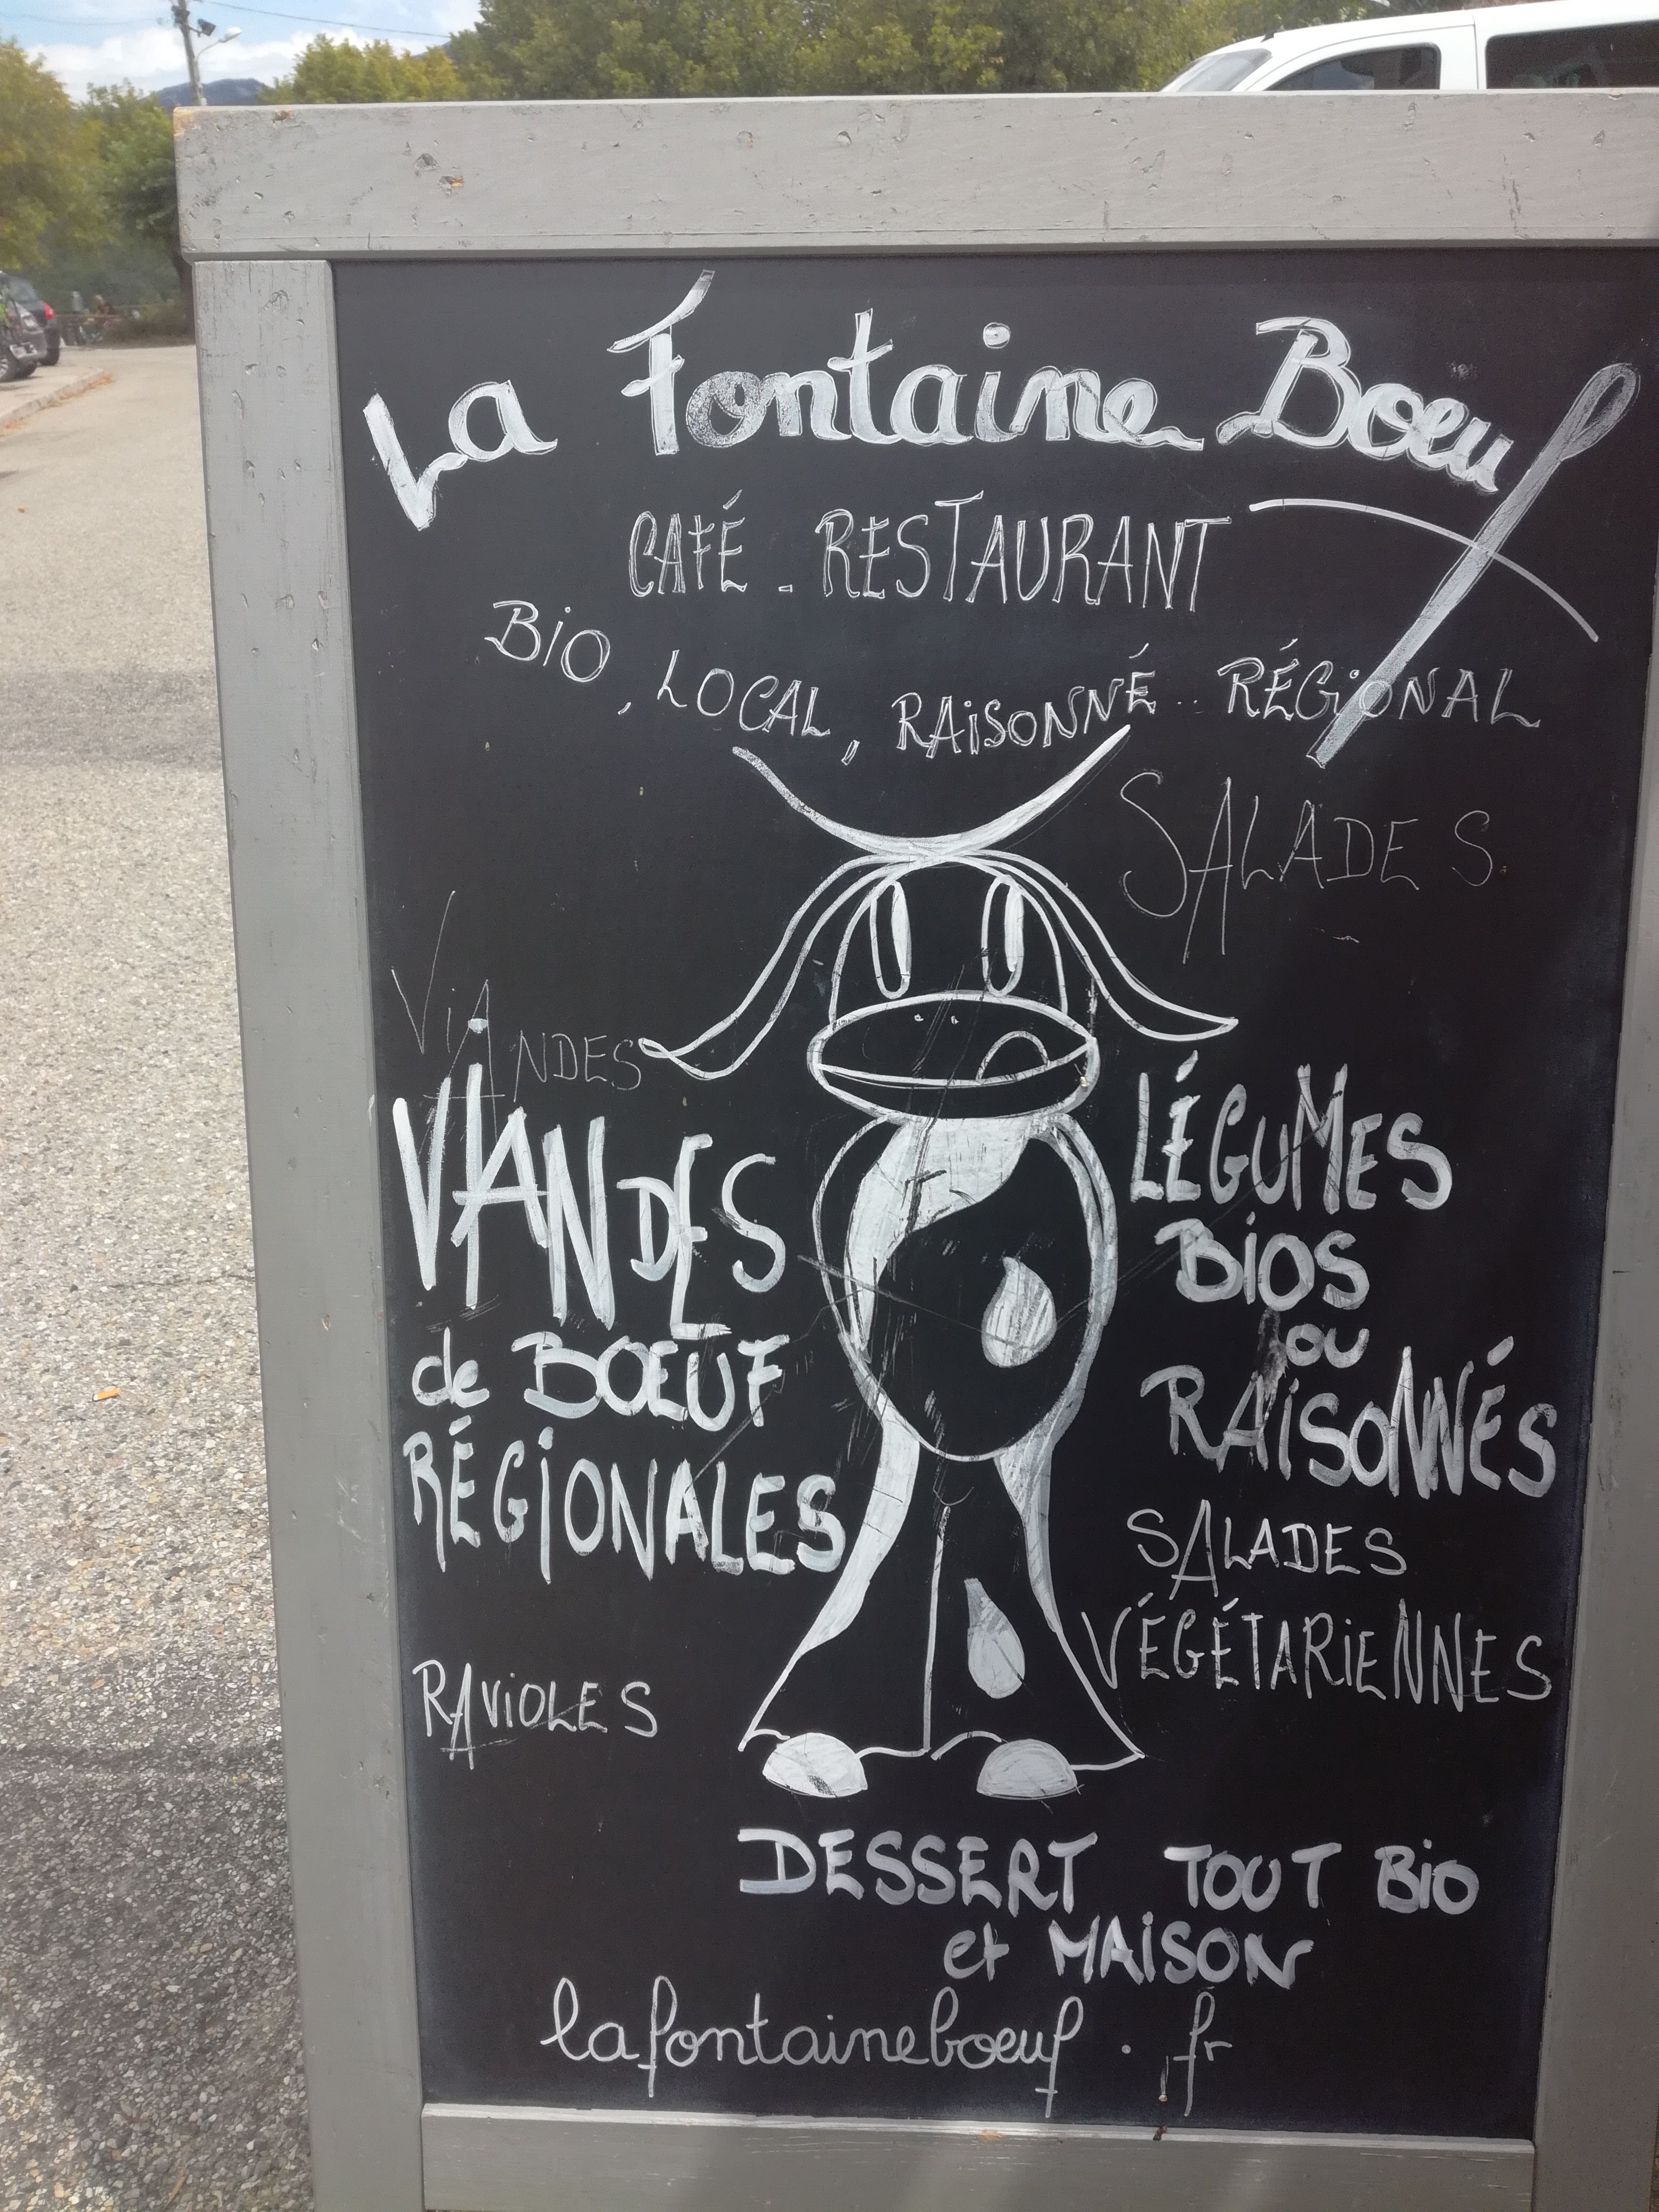 La Fontaine Boeuf
CAFÉ - RESTAURANT
BiO, LOCAL, RAiSONNÉ.. RÉGiONAL
SALADES.
ViANDES
VIANDES
de BOEUF
RÉGiONALES
RAViOLES
LÉGUMES
BiOS
ou
RAiSONNÉS
SALADES
VÉGÉTARiENNES
DESSERT TOUT BiO
et MAiSON
lafontaineboeuf.fr